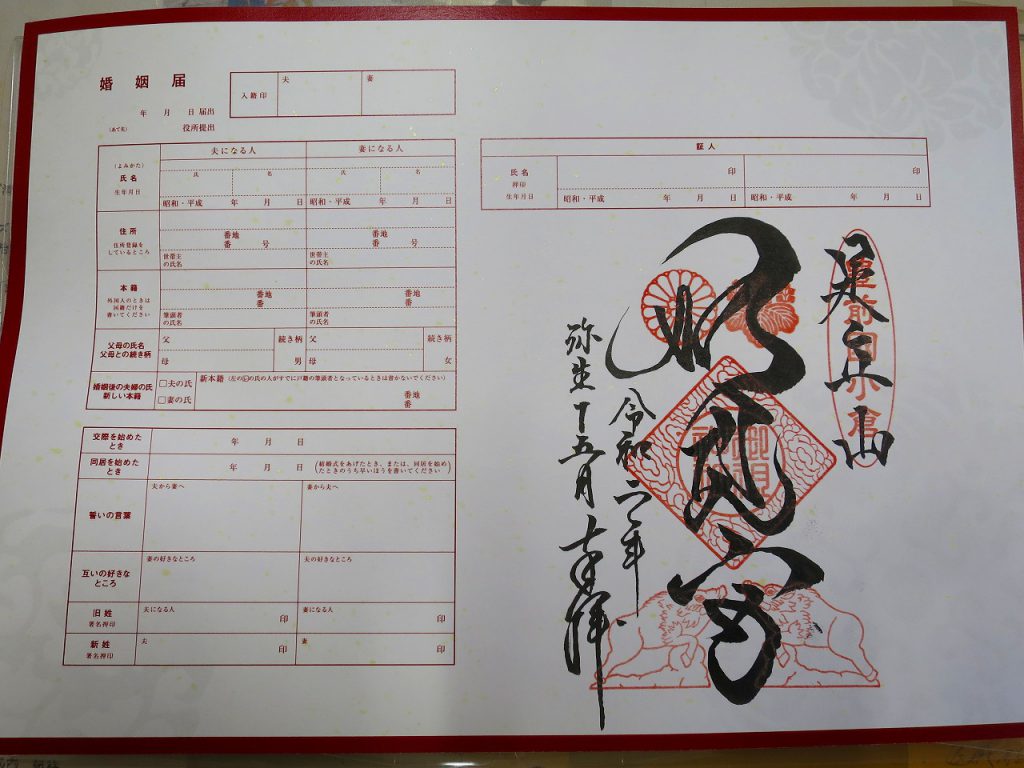 婚姻届
年 月 日 届出
(あて先) 役所提出
入籍印 夫 妻
夫になる人 妻になる人
(よみかた)
氏名 氏 名 氏 名
生年月日 昭和・平成 年 月 日 昭和・平成 年 月 日
住所 番地 番地
住所登録を 番 号 番 号
しているところ 世帯主 世帯主
の氏名 の氏名
本籍
外国人のときは 番地 番地
国籍だけを 番 番
書いてください 筆頭者 筆頭者
の氏名 の氏名
父母の氏名 父 続き柄 父 続き柄
父母との続き柄 母 男 母 女
婚姻後の夫婦の氏 □夫の氏 新本籍(左の☑の氏の人がすでに戸籍の筆頭者となっているときは書かないでください)
新しい本籍 □妻の氏 番地
番
交際を始めた
とき 年 月 日
同居を始めた
とき 年 月 日 (結婚式をあげたとき、または、同居を始め
たときのうち早いほうを書いてください)
誓いの言葉 夫から妻へ 妻から夫へ
互いの好きな
ところ 妻の好きなところ 夫の好きなところ
旧姓 夫になる人 妻になる人
署名押印 印 印
新姓 夫 妻
署名押印 印 印
証人
氏名 印 印
押印
生年月日 昭和・平成 年 月 日 昭和・平成 年 月 日
豊前国小倉
令和二年
弥生十五日
奉拝